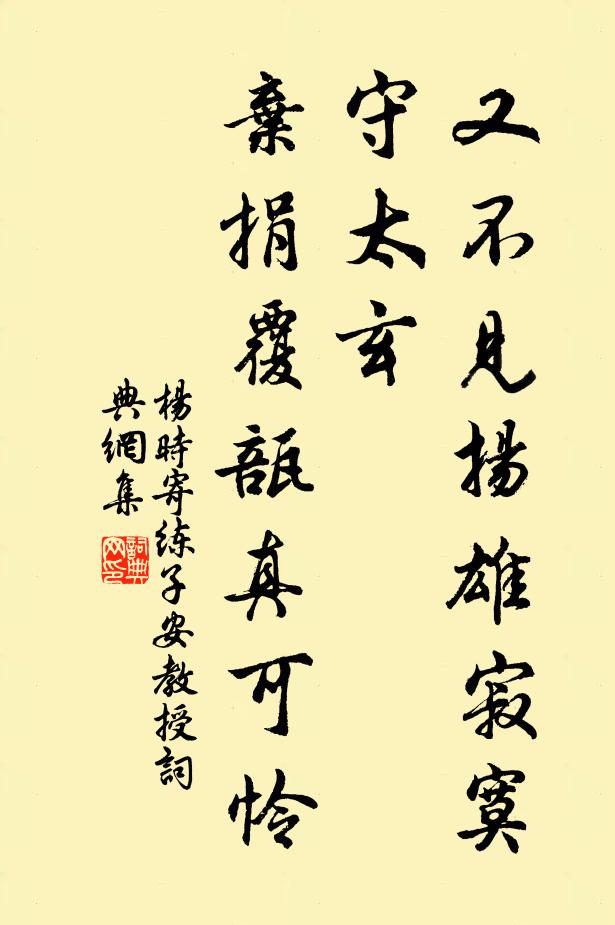 又不見揚雄寂寞
守太玄
棄捐覆瓿真可怜
楊時寄练子安教授詞
典網集
詞典
网印